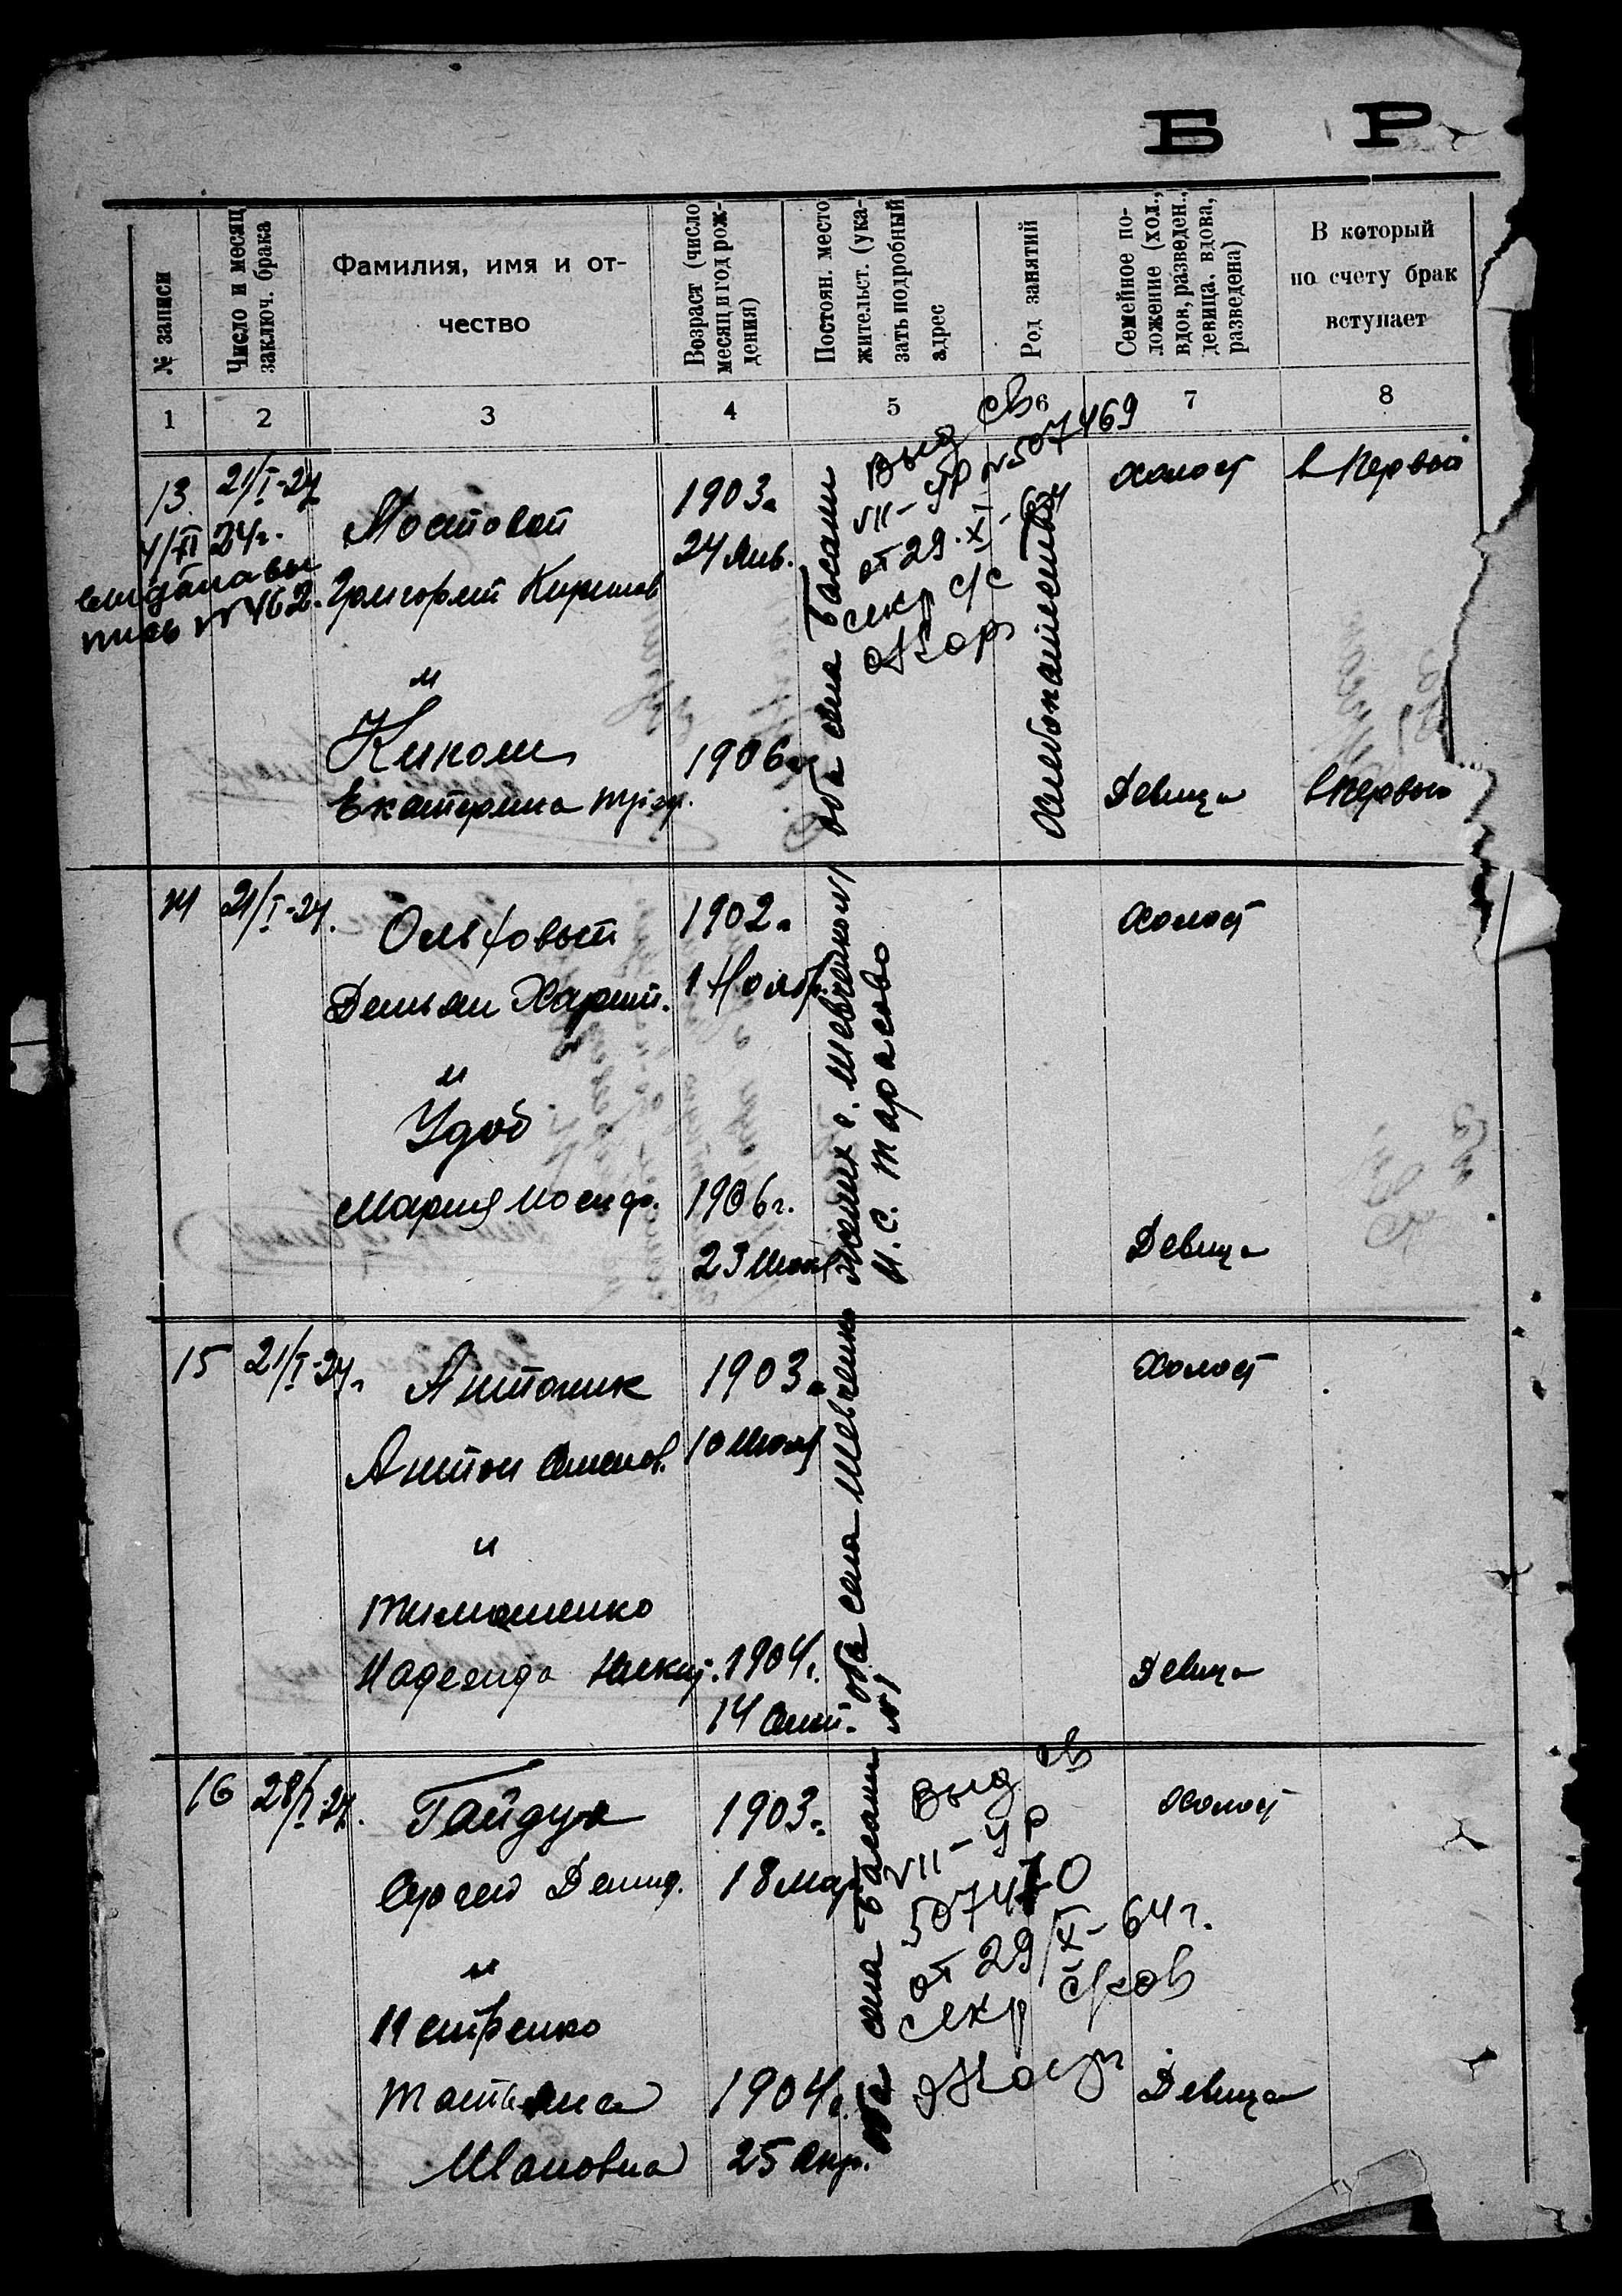 Б Р
№ записи
Число и месяц
заключ. брака
Фамилия, имя и от-
чество
Возраст (число
месяц и год рож-
дения)
Постоян. место
жительст. (ука-
зать подробный
адрес
Род занятий
Семейное по-
ложение (хол.,
вдов, разведен.,
девица, вдова,
разведена)
В который
по счету брак
вступает
1 2 3 4 5 6 7 8
13 21/I-24
4/XI 24г.
выдана вы
пись №462.
Мостовой
Григорий Кирилов
и
Екатерина Григ.
1903г
24 Янв.
1906г
оба села Басани
выд св
VII-УР №507469
от 29.XI-64
секр с/с
Хлебопашество
холост
в первый
Девица
в первый
14 21/I-24.
Ольховый
Демьян Харит.
и
Удод
Мария Иосиф.
1902г
1 Ноябр.
1906г.
23 Июля
жених с. Шевченко №1
н. с. Тарасово
холост
Девица
15 21/I-24г
Антоник
Антон Семенов.
и
Тимошенко
Надежда Никит.
1903г
10 Июля
1904г.
14 Сент.
оба села Шевченко
№1
Холост
Девица
16 28/I-24.
Гайдук
Сергей Демид.
и
Татьяна
Ивановна
1903г.
18 Мар.
1904г.
25 Апр.
оба села Басани
выд св
VII-УР
507470
от 29/XI-64г.
секр с/сов
холост
Девица